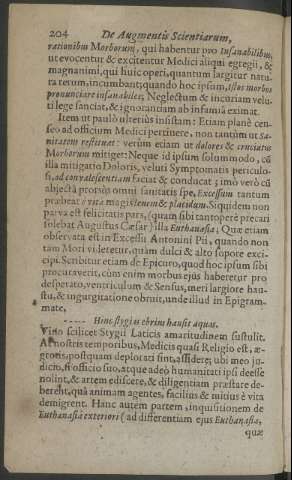 204 De Augmentis Scientiarum,
rationibus Morborum, qui habentur pro Insanabilibus,
ut evocentur & excitentur Medici aliqui egregii, &
magnanimi, qui huic operi, quantum largitur natu-
ra rerum, incumbant; quando hoc ipsum, Istos morbos
pronunciare insanabiles, Neglectum & incuriam velu-
ti lege sanciat, & ignorantiam ab infamiâ eximat.
Item ut paulò ulteriùs insistam: Etiam planè cen-
seo ad officium Medici pertinere, non tantùm ut Sa-
nitatem restituat: verùm etiam ut dolores & cruciatus
Morborum mitiget: Neque id ipsum solummodo, cù
illa mitigatio Doloris, veluti Symptomatis periculo-
si, ad convalescentiam faciat & conducat; imò verò cù
abjectâ prorsùs omni sanitatis spe, Excessum tantum
præbeat vitæ magis lenem & placidum. Siquidem non
parva est felicitatis pars, (quam sibi tantoperè precari
solebat Augustus Cæsar) illa Euthanasia; Quæ etiam
observata est in Excessu Antonini Pii, quando non
tam Mori videretur, quàm dulci & alto sopore exci-
cipi. Scribitur etiam de Epicuro, quod hoc ipsum sibi
procuraverit, cùm enim morbus ejus haberetur pro
desperato, ventriculum & Sensus, meri largiore hau-
stu, & ingurgitatione obruit, unde illud in Epigram-
mate,
----- Hinc stygias ebrius hausit aquas.
Vino scilicet Stygii Laticis amaritudinem sustulit.
At nostris temporibus, Medicis quasi Religio est, æ-
grotis, postquam deplorati sint, assidere; ubi meo ju-
dicio, si officio suo, atque adeò humanitati ipsi deesse
nolint, & artem ediscere, & diligentiam præstare de-
berent, quâ animam agentes, faciliùs & mitiùs è vita
demigrent. Hanc autem partem, inquisitionem de
Euthanasia exteriori (ad differentiam ejus Euthanasiæ,
quæ